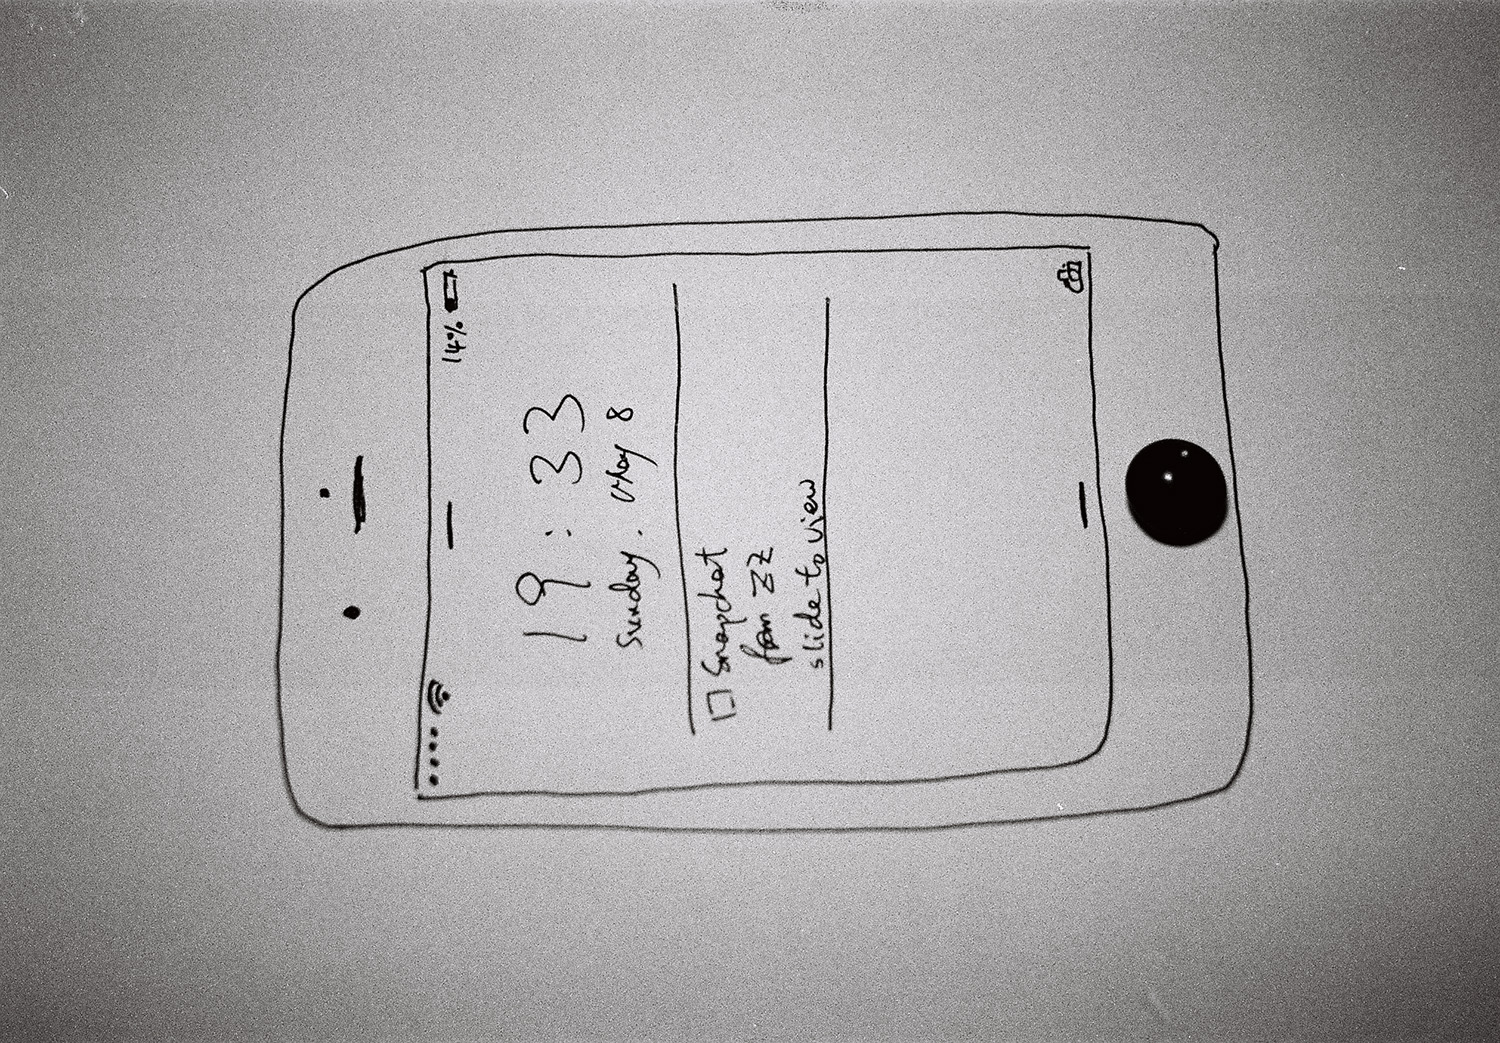 14%
19:33
Sunday. May 8
Snapchat
from ZZ
slide to view